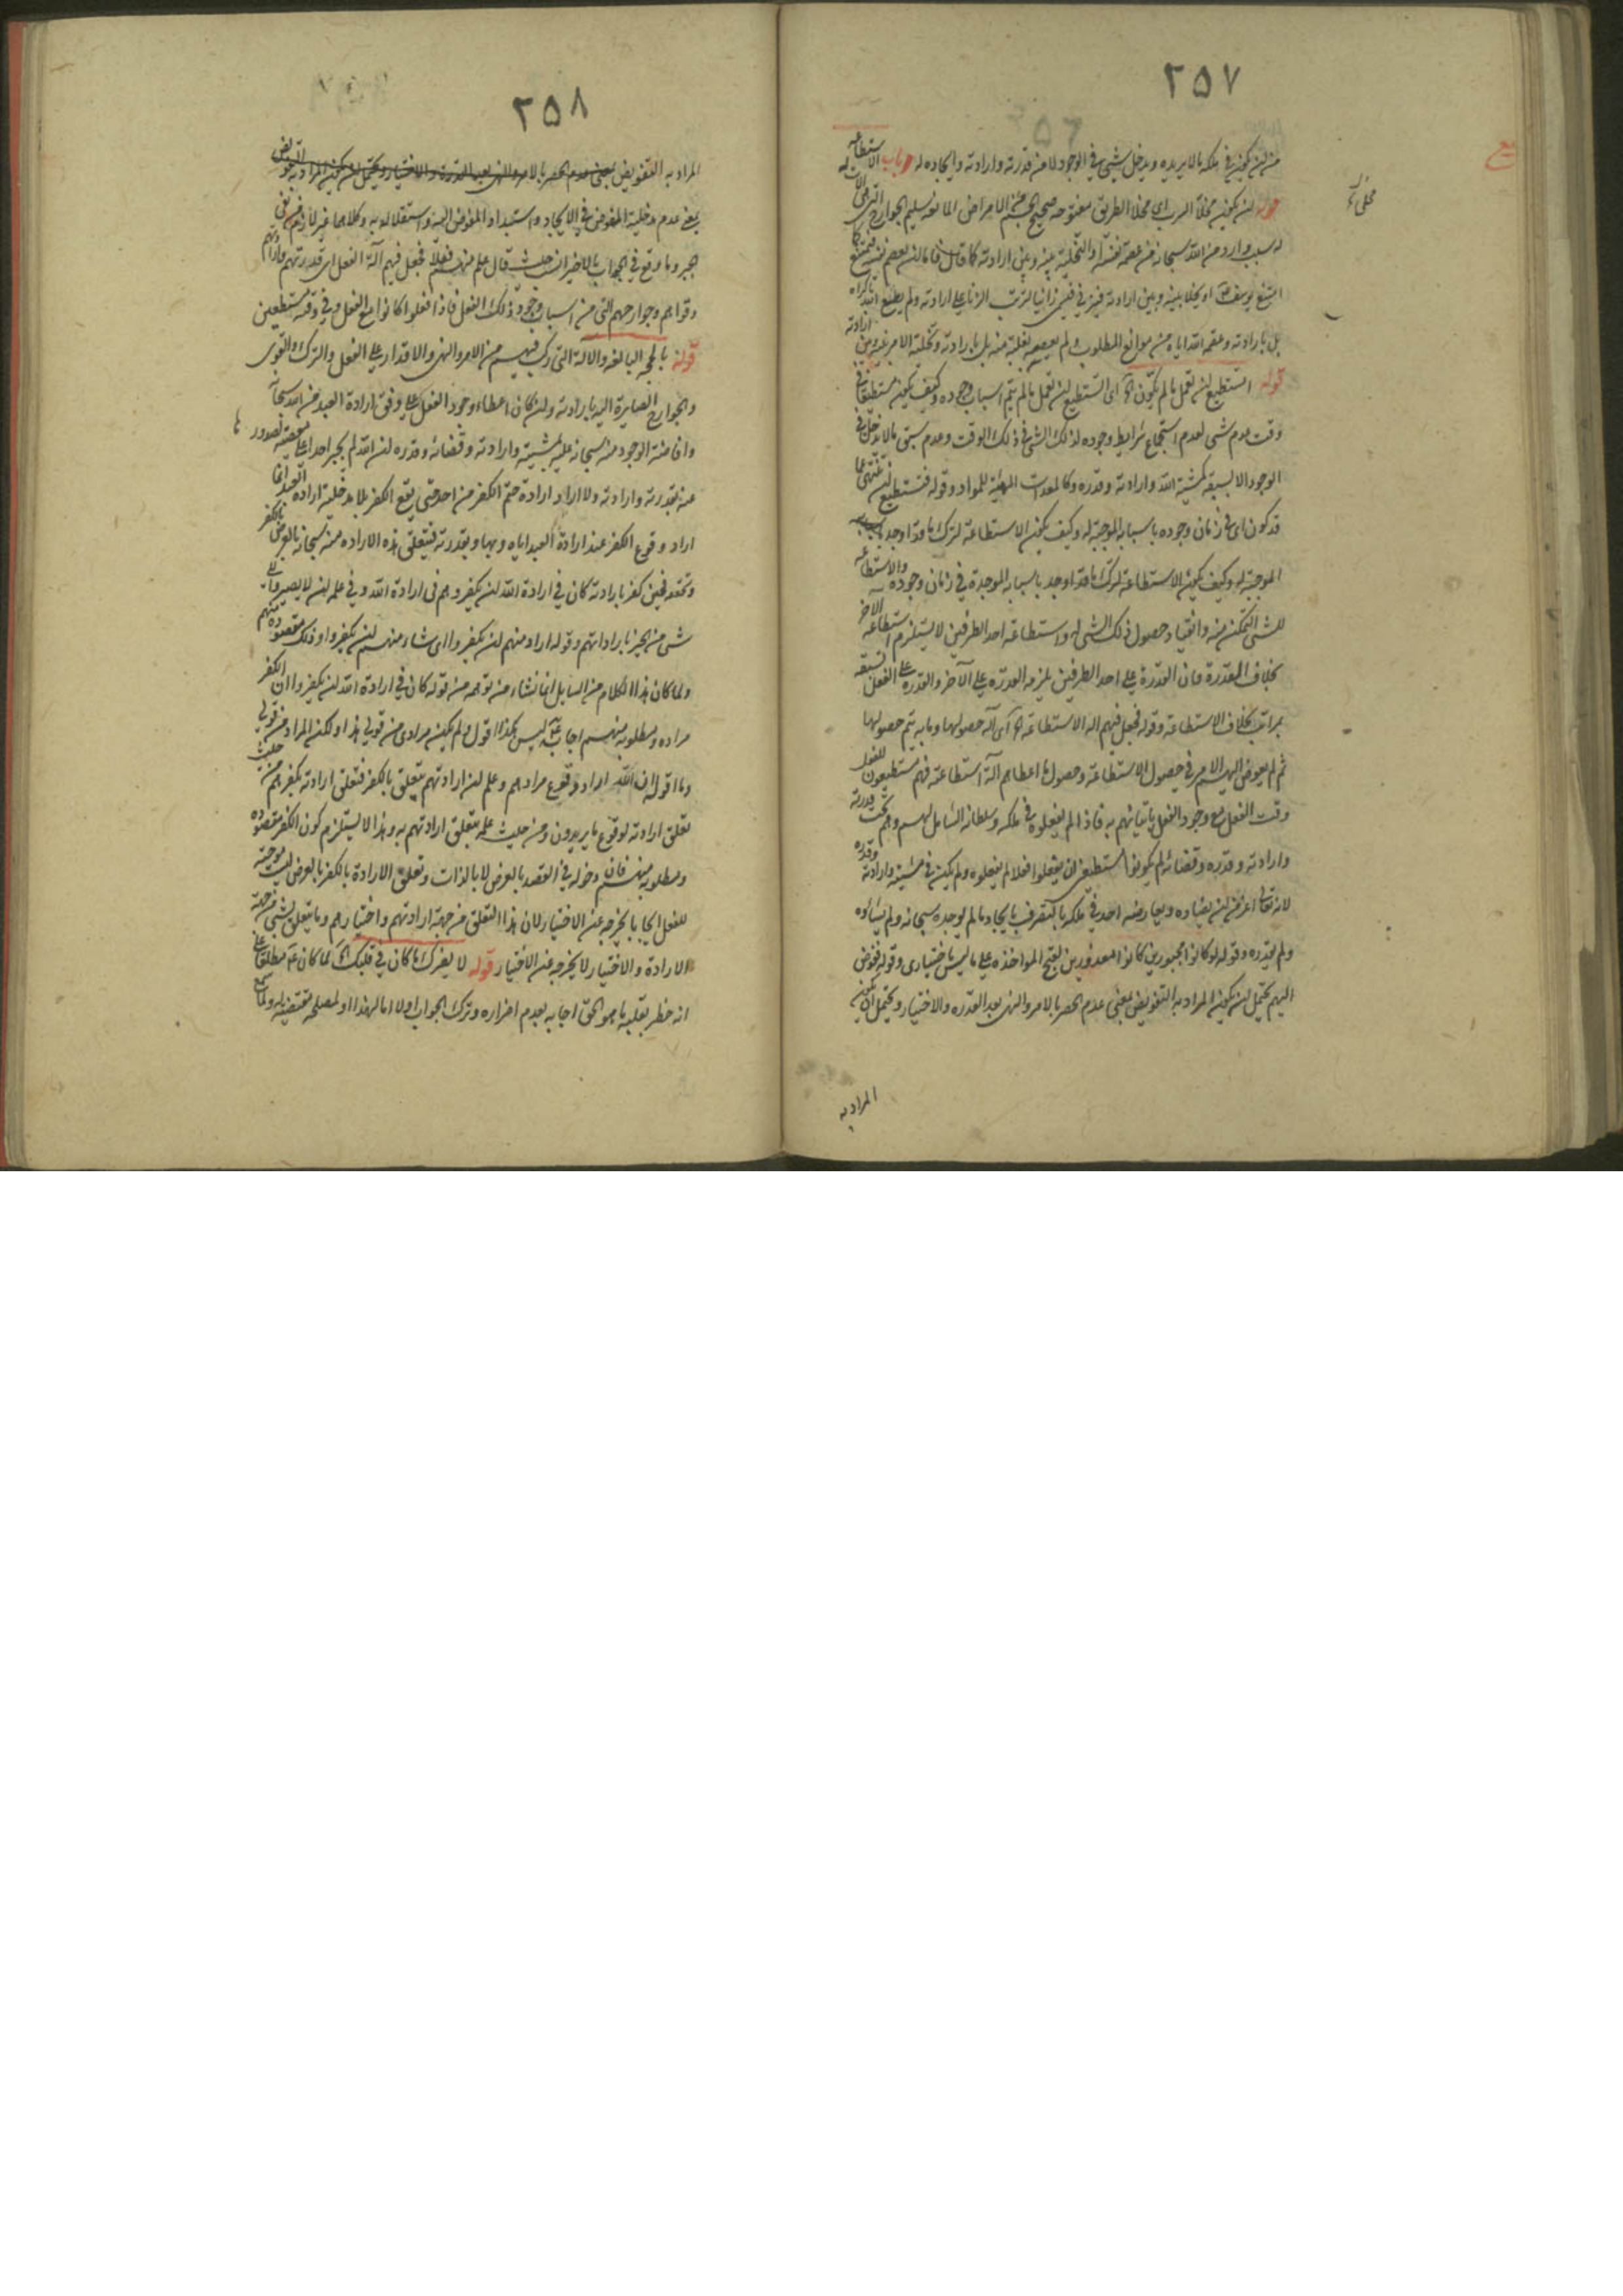 ٢٥٧
من ان يكون في ملكه ما لا يريده ويدخل شيء في الوجود لا من قدرته وارادته وايجاده له باب الاستطاعة
قوله ان يكون مخلا السرب اي مخلا الطريق مفتوحه صحيح الجسم من الامراض المانعة سليم الجوارح
له سبب وارد من الله سبحانه من عصمة نفسه او التخلية بينه وبين ارادته كما قال فاما ان يعصم نفسه فيمتنع كما
امتنع يوسف او يخلى بينه وبين ارادته فيزني فيسمى زانيا لترتب الزنا على ارادته ولم يطع الله باكراه
بل بارادته وعصمة الله اياه من موانع المطلوب ولم يعصه بغلبة منه بل بارادته وتخلية الامر بينه وبين ارادته
قوله اتستطيع ان تعمل ما لم يكون اي اتستطيع ان تعمل ما لم يتم اسباب وجوده وكيف يكون مستطيعا في
وقت عدم شيء لعدم استجماع شرايط وجوده لذلك الشيء في ذلك الوقت وعدم سبق ما لا يدخل في
الوجود الا بسبقه كمشية الله وارادته وقدره وكالمعدات المهيئة للمواد وقوله فتستطيع ان تنتهي عما
قد كون اي في زمان وجوده باسبابه الموجبة له وكيف يكون الاستطاعة لترك ما قد اوجد
الموجبة له وكيف يكون الاستطاعة لترك ما قد اوجد باسبابه الموجدة في زمان وجوده والاستطاعة
للشيء التمكن منه وانقياد حصول ذلك الشيء له واستطاعة احد الطرفين لا يستلزم استطاعة الاخر
بخلاف القدرة فان القدرة على احد الطرفين يلزمه القدرة على الآخر والقدرة على الفعل تسبقه
بمراتب بخلاف الاستطاعة وقوله فجعل فيهم الة الاستطاعة اي آلة حصولها وما به يتم حصولها
ثم لم يفوض اليهم الامر في حصول الاستطاعة وحصول ما اعطاهم آلة استطاعة فهم مستطيعون للفعل
وقت الفعل مع وجود الفعل باتيانهم به فاذا لم يفعلوه في ملكه وسلطانه الشامل لهم وهم تحت قدرته
وارادته وقدره وقضائه لم يكونوا مستطيعين ان يفعلوا فعلا لم يفعلوه ولم يكن في مشيته وارادته وقدره
لانه تعالى اعز من ان يضاده ويعارضه احد في ملكه بالتصرف بايجاد ما لم يوجده سبحانه ولم يشاؤه
ولم يقدره وقوله لو كانوا مجبورين كانوا معذورين لقبح المواخذة على ما ليس باختياري وقوله ففوض
اليهم يحتمل ان يكون المراد به التفويض بمعنى عدم الحصر بالامر والنهي بعد القدرة والاختيار ويحتمل ان يكون
المراد به
٢٥٨
المراد به التفويض بمعنى عدم الحصر بالامر والنهي بعد القدرة والاختيار ويحتمل ان يكون المراد به التفويض
بمعنى عدم مدخلية المفوض في الايجاد واستبداد المفوض اليه واستقلاله به وكلاهما غير لازم من نفي
الجبر وما وقع في الجواب بالاخير ان حيث قال علم منهم فعلا فجعل فيهم آلة الفعل اي قدرتهم وارادتهم
وقواهم وجوارحهم التي من اسباب وجود ذلك الفعل فاذا فعلوا كانوا مع الفعل وفي وقته مستطيعين
قوله بالحجة البالغة والالة التي ركب فيهم من الامر والنهي والاقدار على الفعل والترك والقوى
والجوارح الصايرة اليه بارادته وان كان اعطاء وجود الفعل على وفق ارادة العبد من الله سبحانه
وافاضته الوجود منه سبحانه عليه بمشيته وارادته وقضائه وقدره لان الله لم يجبر احدا على معصيته لصدورها
عنه بقدرته وارادته ولا اراد ارادة حتم الكفر من احد حتى يقع الكفر بلا مدخلية ارادة العبد انما
اراد وقوع الكفر عند ارادة العبد اياه وبها وبقدرته فيتعلق هذه الارادة منه سبحانه بالعرض بالكفر
فحين كفر بارادته كان في ارادة الله ان يكفر وهم في ارادة الله وفي علمه ان لا يصيروا الى
شيء من الخير باراداتهم وقوله اراد منهم ان يكفروا اي شاء منهم ان يكفروا وذلك مقصوده منهم
ولما كان هذا الكلام من السايل انما نشاء من توهمه من قوله كان في ارادة الله ان يكفروا ان الكفر
مراده ومطلوبه منهم اجاب ليس هكذا اقول ولم يكن مرادي من قولي هذا ولكن المراد من قولي
وما اقول ان الله اراد وقوع مرادهم وعلم ان ارادتهم يتعلق بالكفر فتعلق ارادته بكفرهم من حيث
تعلق ارادته لوقوع ما يريدون ومن حيث علمه بتعلق ارادتهم به وهذا لا يستلزم كون الكفر مقصوده
ومطلوبه منهم فان دخوله في القصد بالعرض لا بالذات وتعلق الارادة بالكفر بالعرض ليست موجبة
للفعل ايجابا يخرجه عن الاختيار لان هذا التعلق من جهة ارادتهم واختيارهم وما يتعلق بشيء من جهة
الارادة والاختيار لا يخرجه عن الاختيار قوله لا يضرك ما كان في قلبك لما كان مطلعا على
انه خطر بقلبه ما هو الحق اجابه بعدم اضراره وترك الجواب اولا اما لهذا او لمصلحة تقتضيه ولما